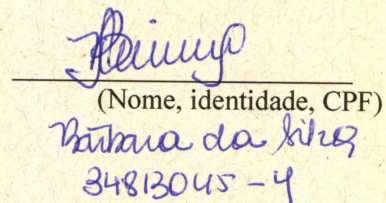 (Nome, identidade, CPF)
Bárbara da Silva
34813045-4